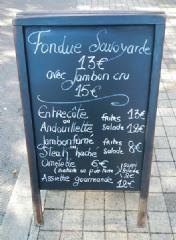 Fondue Savoyarde
13€
avec Jambon cru
15€
Entrecôte frites 13€
ou
Andouillette salade 12€
Jambon fumé frites
ou
Steak haché salade 8€
Omelette 6€
(nature ou
Assiette gourmande 12€